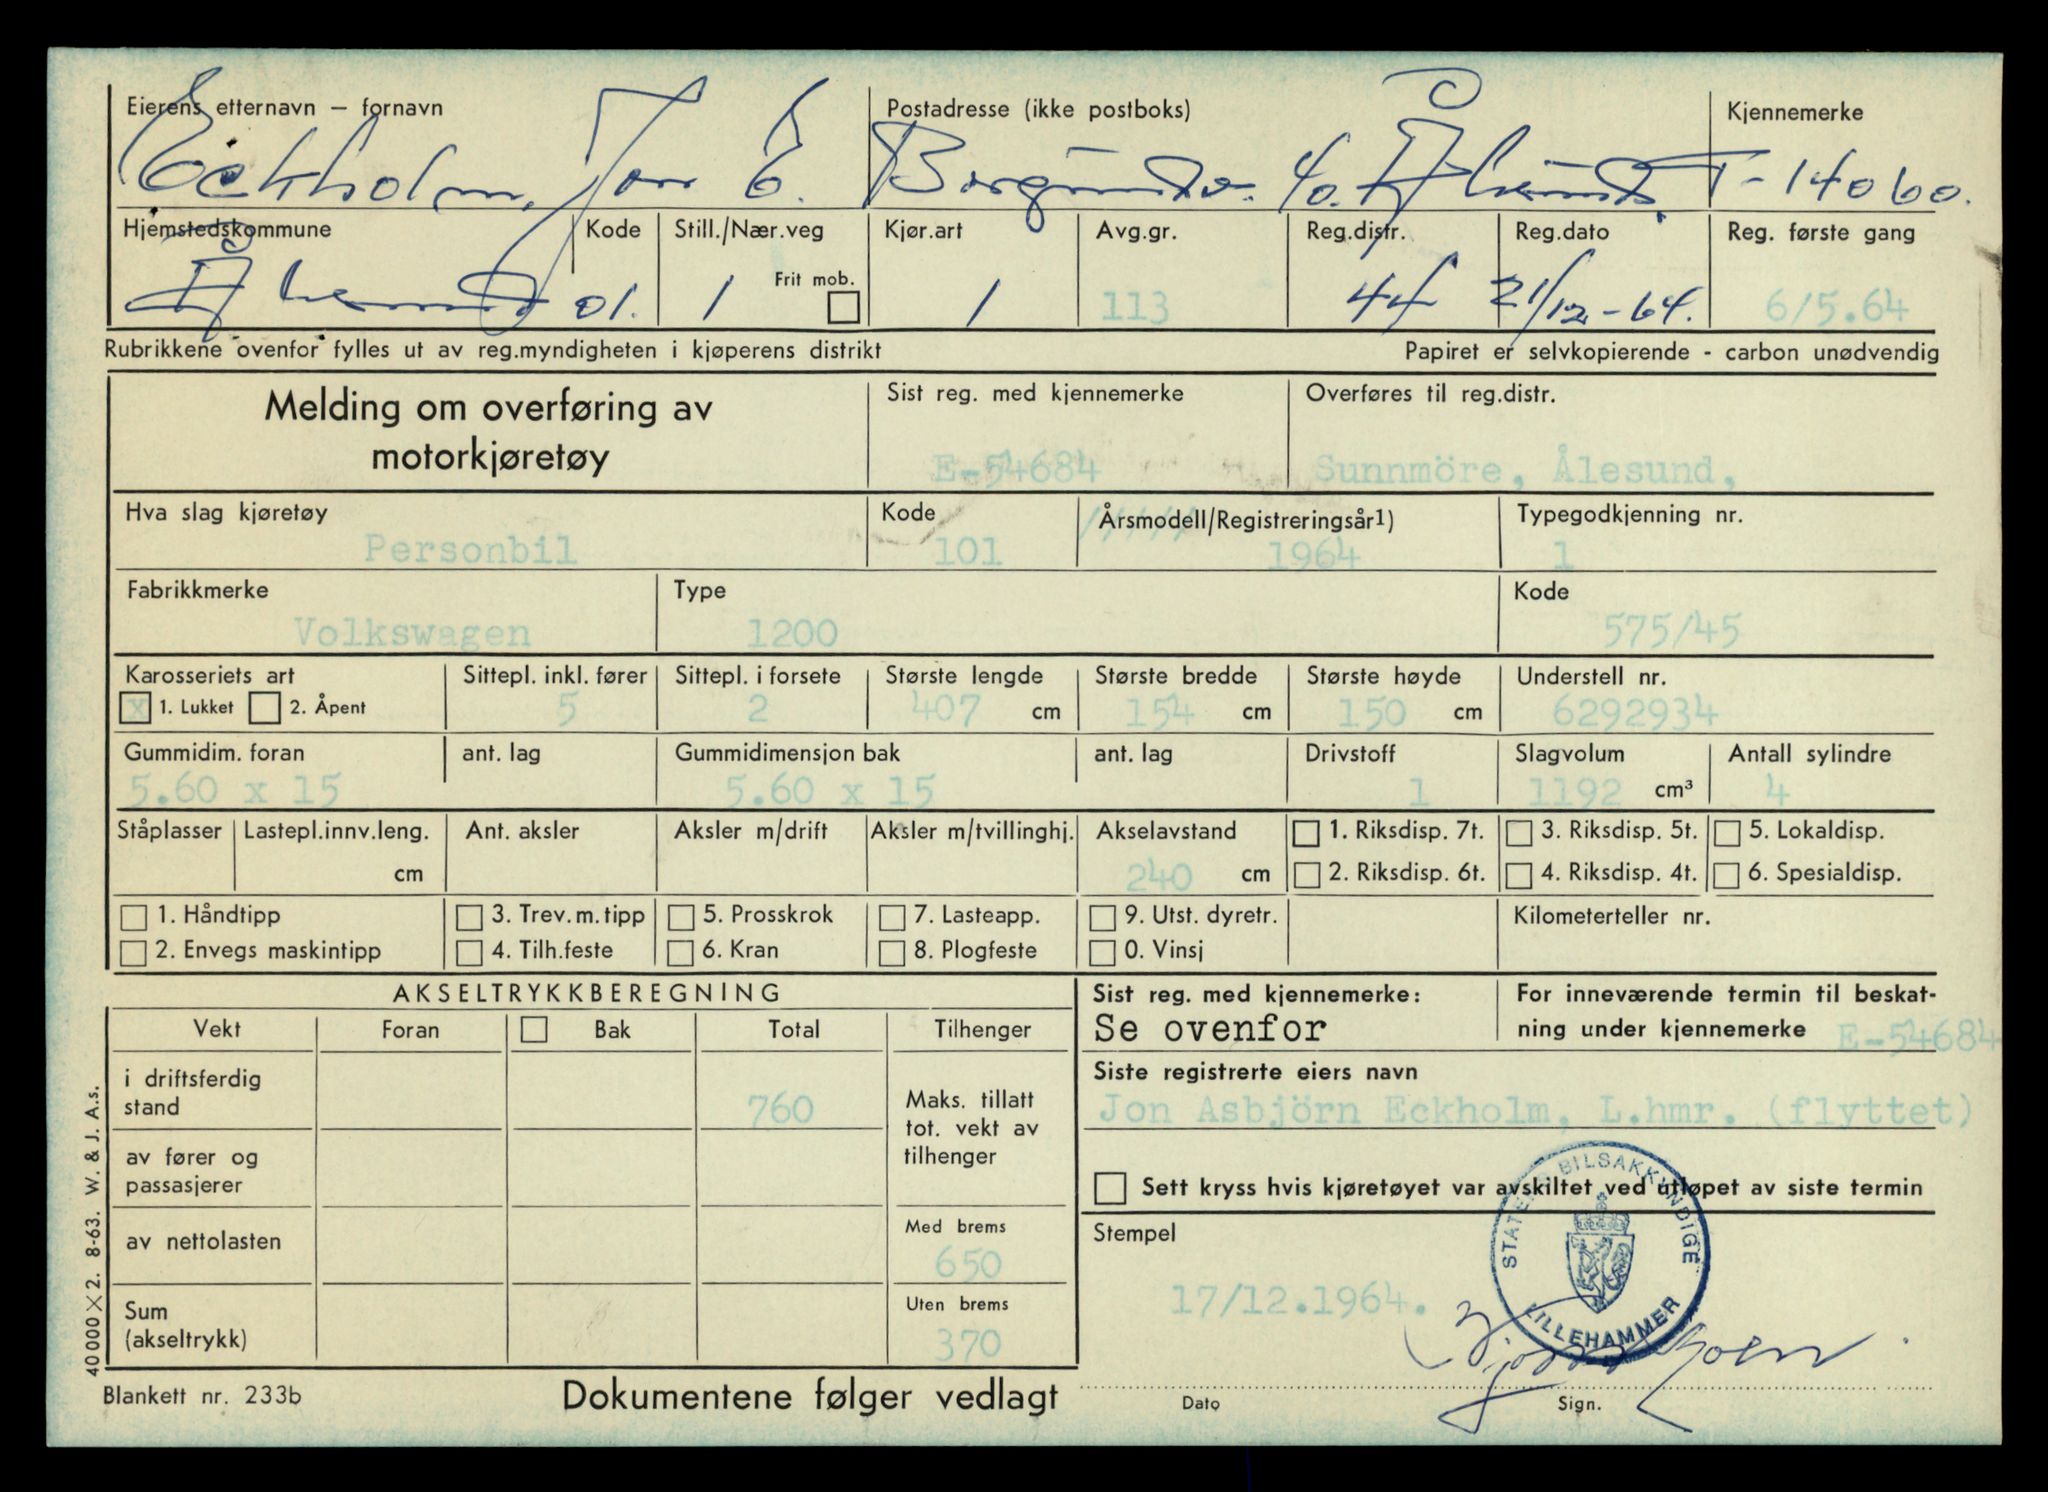 Eierens etternavn – fornavn Postadresse (ikke postboks) Kjennemerke
Eckholm, Jon E. Borgundv. 40. Ålesund. T-14060.
Hjemstedskommune Kode Still./Nær.veg Kjør.art Avg.gr. Reg.distr. Reg.dato Reg. første gang
Frit mob.
Ålesund 01. 1 1 113 44 21/12-64. 6/5.64
Rubrikkene ovenfor fylles ut av reg.myndigheten i kjøperens distrikt Papiret er selvkopierende - carbon unødvendig
Melding om overføring av Sist reg. med kjennemerke Overføres til reg.distr.
motorkjøretøy E-54684 Sunnmöre, Ålesund,
Hva slag kjøretøy Kode Årsmodell/Registreringsår1) Typegodkjenning nr.
Personbil 101 1964 1
Fabrikkmerke Type Kode
Volkswagen 1200 575/45
Karosseriets art Sittepl. inkl. fører Sittepl. i forsete Største lengde Største bredde Største høyde Understell nr.
x 1. Lukket 2. Åpent 5 2 407 cm 154 cm 150 cm 6292934
Gummidim. foran ant. lag Gummidimensjon bak ant. lag Drivstoff Slagvolum Antall sylindre
5.60 x 15 5.60 x 15 1 1192 cm³ 4
Ståplasser Lastepl.innv.leng. Ant. aksler Aksler m/drift Aksler m/tvillinghj. Akselavstand 1. Riksdisp. 7t. 3. Riksdisp. 5t. 5. Lokaldisp.
cm 240 cm 2. Riksdisp. 6t. 4. Riksdisp. 4t. 6. Spesialdisp.
1. Håndtipp 3. Trev.m.tipp 5. Prosskrok 7. Lasteapp. 9. Utst. dyretr. Kilometerteller nr.
2. Envegs maskintipp 4. Tilh.feste 6. Kran 8. Plogfeste 0. Vinsj
AKSELTRYKKBEREGNING Sist reg. med kjennemerke: For inneværende termin til beskat-
Vekt Foran Bak Total Tilhenger Se ovenfor ning under kjennemerke E-54684
i driftsferdig Siste registrerte eiers navn
stand 760 Maks. tillatt Jon Asbjörn Eckholm, L.hmr. (flyttet)
tot. vekt av
av fører og tilhenger
passasjerer Sett kryss hvis kjøretøyet var avskiltet ved utløpet av siste termin
av nettolasten Med brems Stempel
650 STATENS BILSAKKYNDIGE
Sum Uten brems 17/12.1964. LILLEHAMMER
(akseltrykk) 370
Blankett nr. 233b Dokumentene følger vedlagt Dato Sign.
40000 X 2. 8-63. W. & J. A.s.